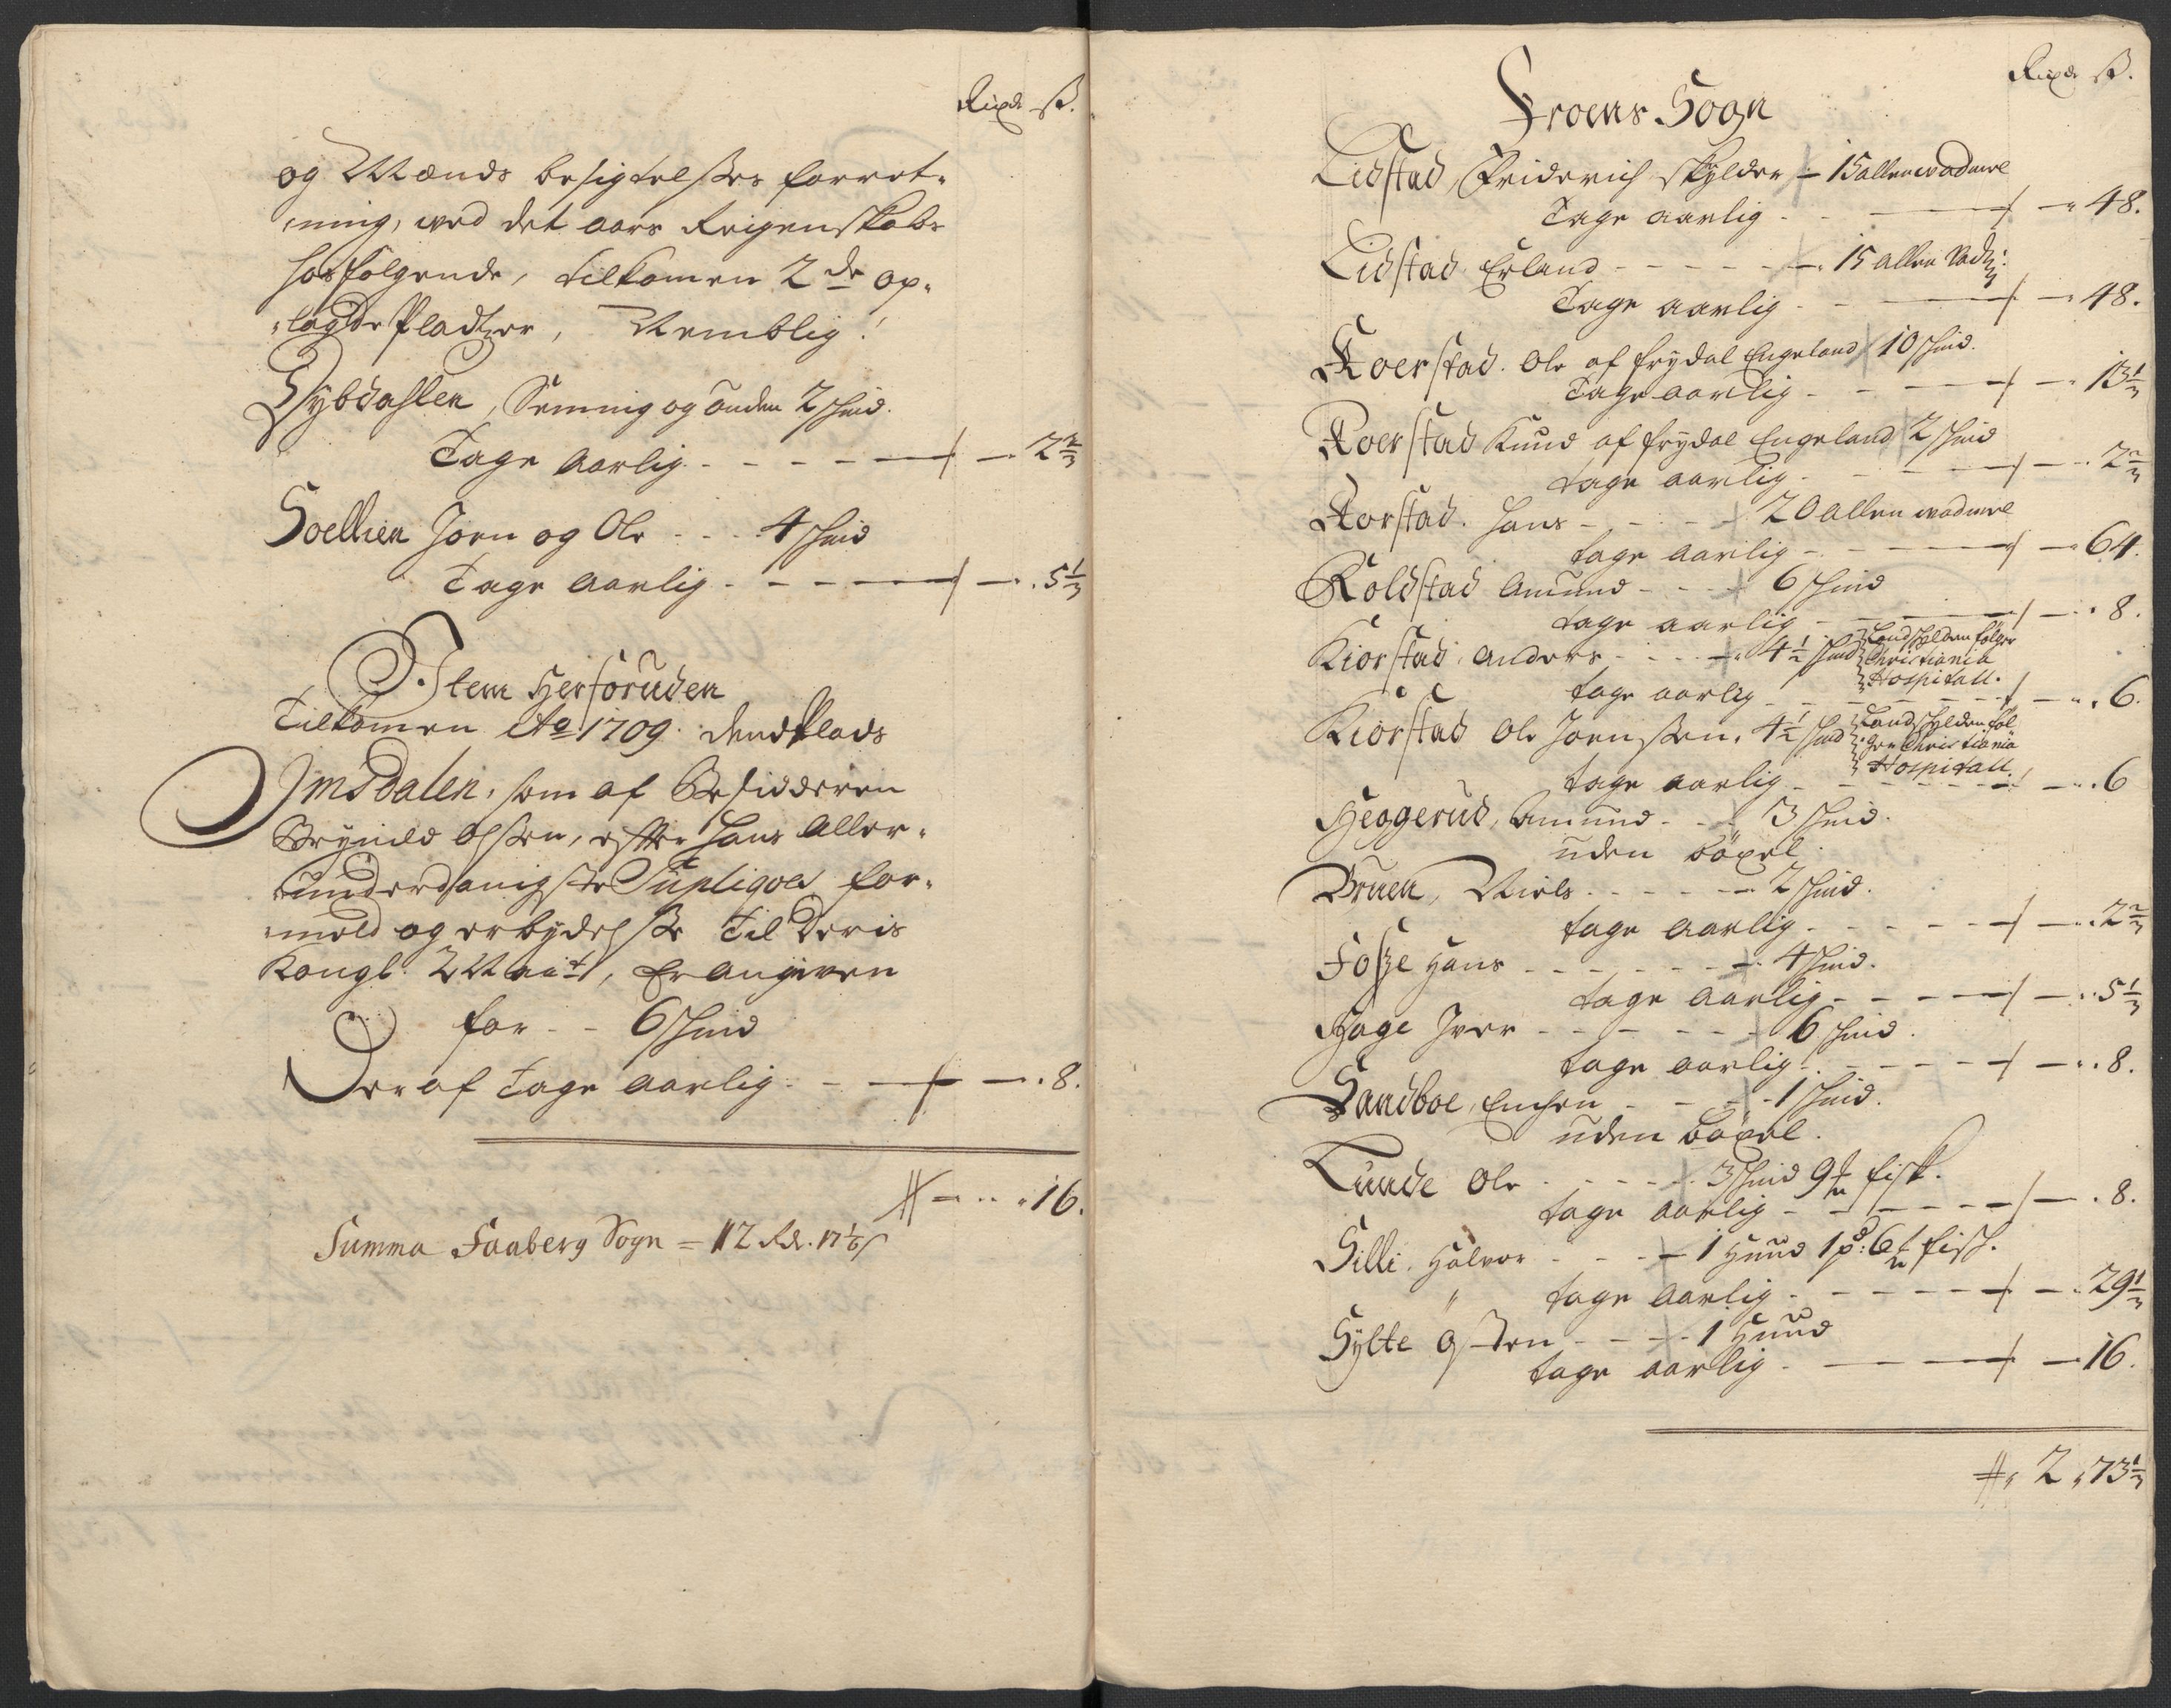 Rixd ß.
og Mænds besigtelsses forret-
ning, ved det aars Reigenskabs
hosfølgende, tilkomen 2de op-
lagde Pladtzer, Nemblig!
Dybdahlen, Semmig og anden 2 schind.
Tage Aarlig - - - - - 2 2/3
Soellien Joen og Ole - - - 4 schind
Tage Aarlig - - - - 5 1/3
Item Herforuden
Tilkomen Ao 1709. dend Plads
Imsdalen, som af Besidderen
Brynild Olssen, efter hans Aller-
underdanigste Supliqves for-
meld og erbydelsse til Deris
Kongl: Mait, Er angiven
for - - 6 schind
Deraf Tage Aarlig - - - - 8.
# - - 16.
Summa Faaberg Sogn = 12 Rdr. 17 1/6 ß
Rixd ß.
Froens Sogn
Lidstad, Friderich skylder - 15 allen wadmel
Tage aarlig - - - 48.
Lidstad Erland - - - - - 15 allen Vadm:
Tage aarlig - - - 48.
Roerstad. Ole af frydal Engeland 10 schind.
Tage aarlig - - - 13 1/3
Roerstad Knud af frydal Engeland 2 schind
tage aarlig - - - 2 2/3
Rorstad. Hans - - - - 20 allen wadmel
tage aarlig - - - 64.
Koldstad Amund - - - 6 schind
tage aarlig - - - 8.
Kiorstad, Anders - - - 4 1/2 schind Landskylden følger
Christiania
Hospitall.
tage aarlig - - - 6.
Kiorstad Ole Joenssen. 4 1/2 schind Landskylden føl-
ger Christiania
Hospitall.
tage aarlig - - - 6
Heggerud, Amund - - - 3 schind.
uden böxel
Bruen, Niels - - - - - 2 schind.
tage aarlig - - - 2 2/3
Fosse Hans - - - - - 4 schind.
tage aarlig - - - 5 1/3
Hage Iver - - - - - 6 schind.
tage aarlig - - - 8.
Sandboe, Enchen - - - - 1 schind.
uden böxel.
Lunde Ole - - - - - 3 schind 9 ℔ fisk.
tage aarlig - - - 8.
Silli. Halvor - - - - 1 Huud 1 pd: 6 ℔ fisch.
tage aarlig - - - 29 1/3
Sylte Østen - - - - 1 Huud
tage aarlig - - - 16.
#, 2, 73 1/3